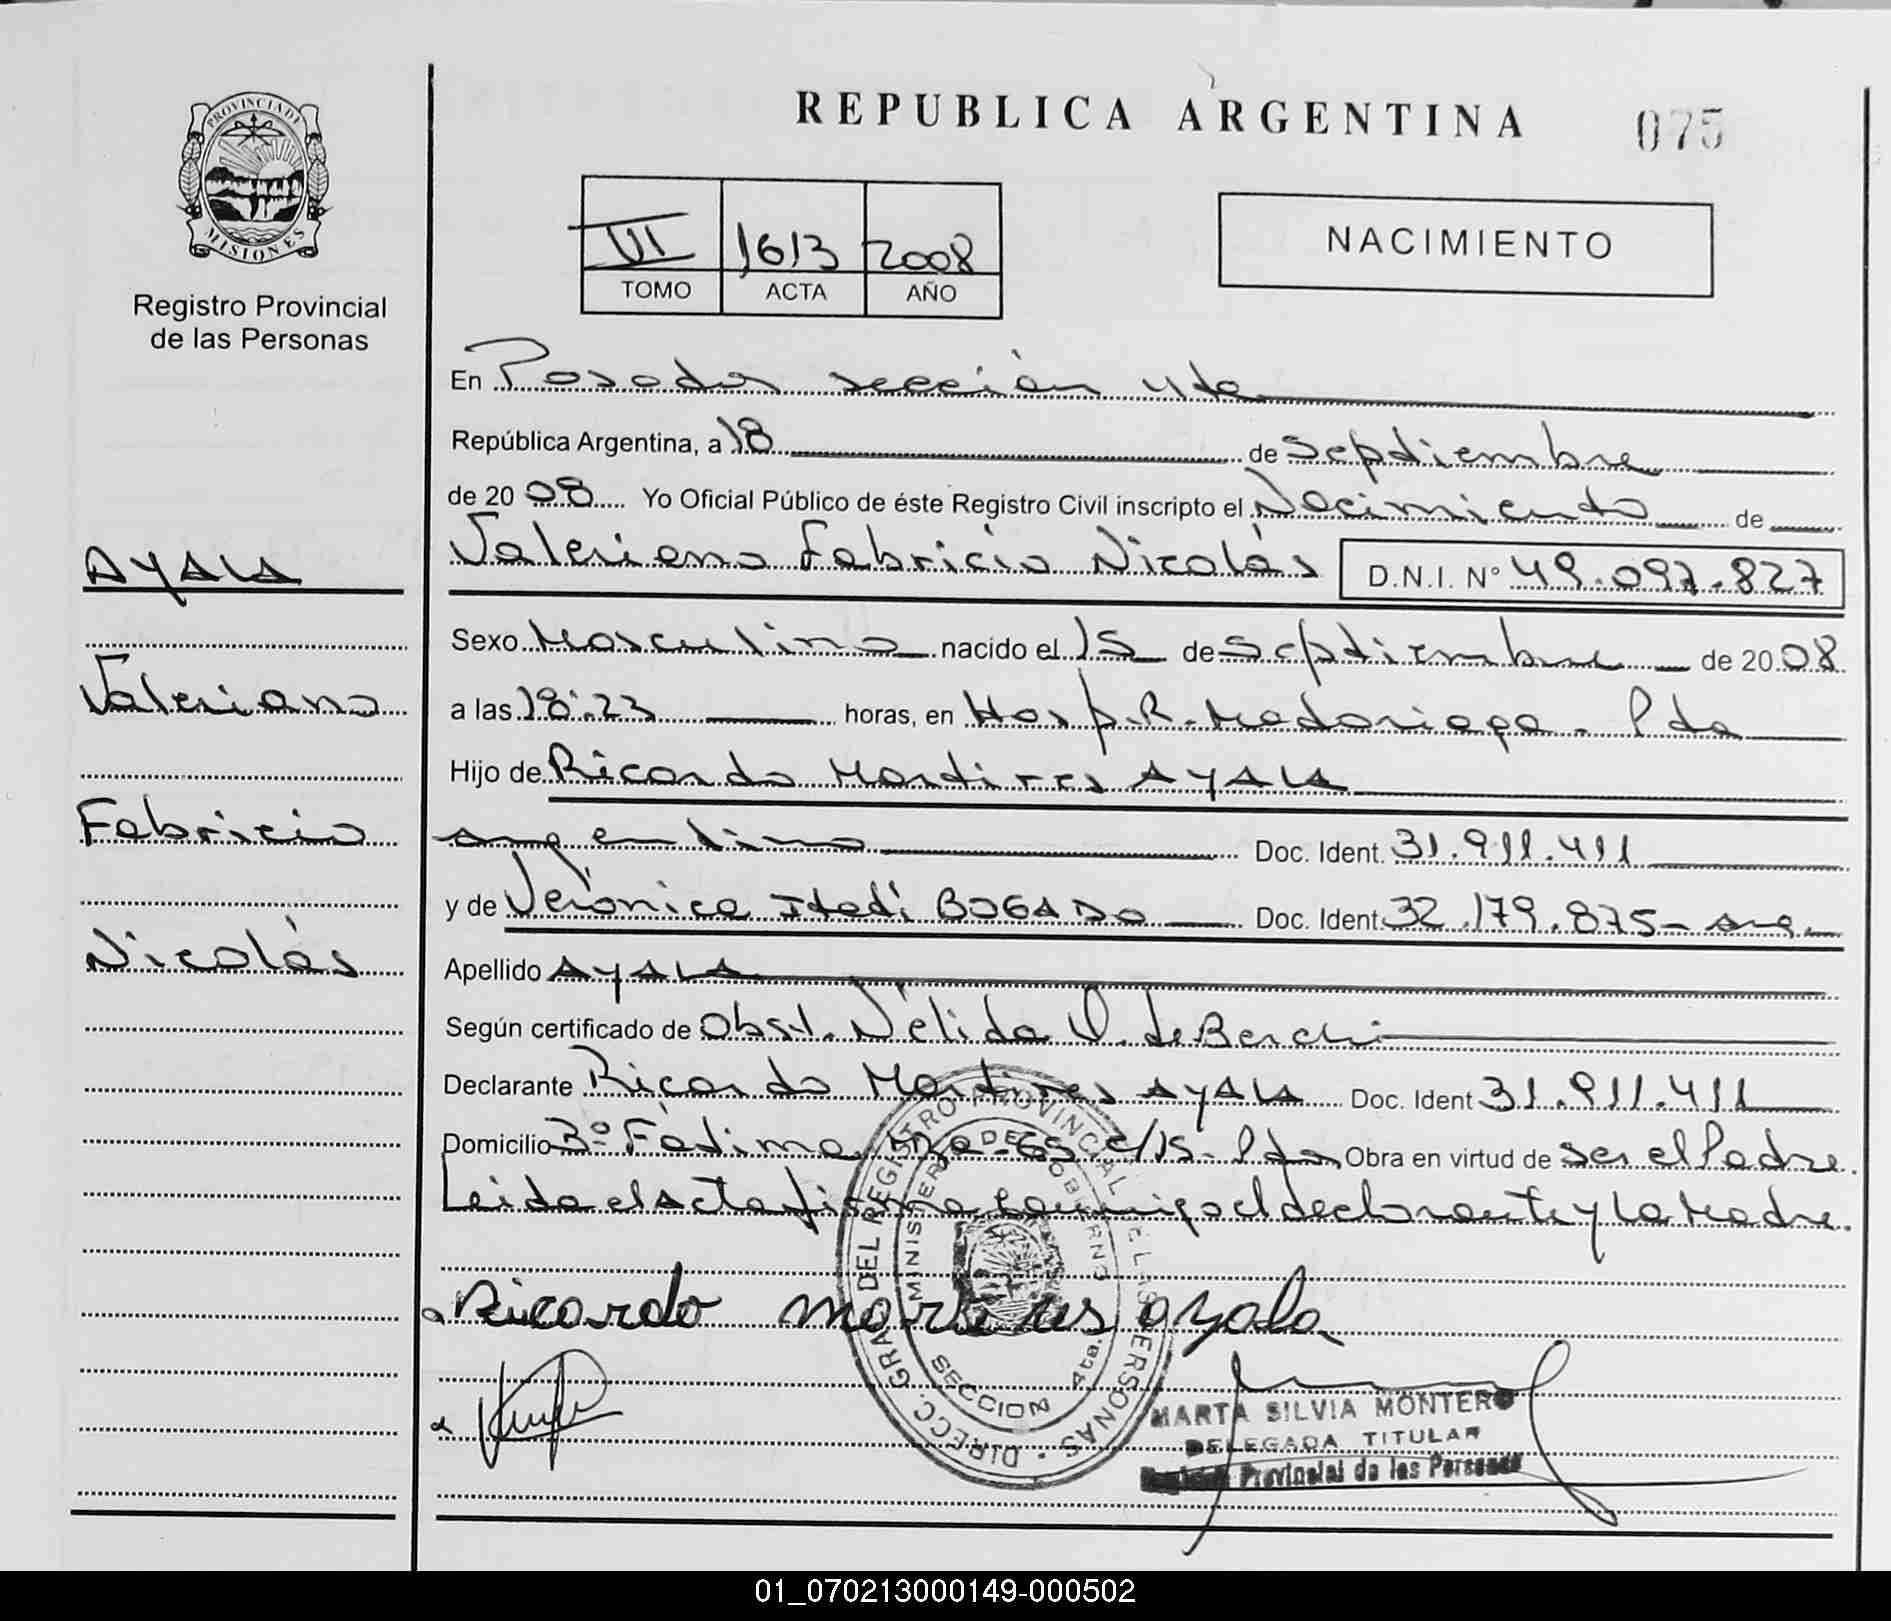 REPUBLICA ARGENTINA
075
PROVINCIA DE
MISIONES
Registro Provincial
de las Personas
VI 1613 2008
TOMO ACTA AÑO
NACIMIENTO
En Posadas sección 4ta
República Argentina, a 18 de septiembre
de 2008 Yo Oficial Público de éste Registro Civil inscripto el Nacimiento de
Valeriano Fabricio Nicolás D.N.I. N° 49.097.827
Sexo Masculino nacido el 15 de septiembre de 2008
a las 18:23 horas, en Hosp. R. Madariaga - Pdas
Hijo de Ricardo Martires AYALA
argentino Doc. Ident. 31.911.411
y de Verónica Itatí BOGADO Doc. Ident. 32.179.875 - arg.
Apellido AYALA
Según certificado de Obst. Nélida V. de Berchi
Declarante Ricardo Martires AYALA Doc. Ident 31.911.411
Domicilio B° Fátima Mza-65 c/15 - Pdas Obra en virtud de ser el Padre.
Leida el acta firma conmigo el declarante y la Madre.
Ricardo martires ayala
AYALA
Valeriano
Fabricio
Nicolás
DIRECC. GRAL DEL REGISTRO PROVINCIAL DE LAS PERSONAS
MINISTERIO DE GOBIERNO
SECCION 4ta.
MARTA SILVIA MONTERO
DELEGADA TITULAR
Provincial de las Personas
01_070213000149-000502